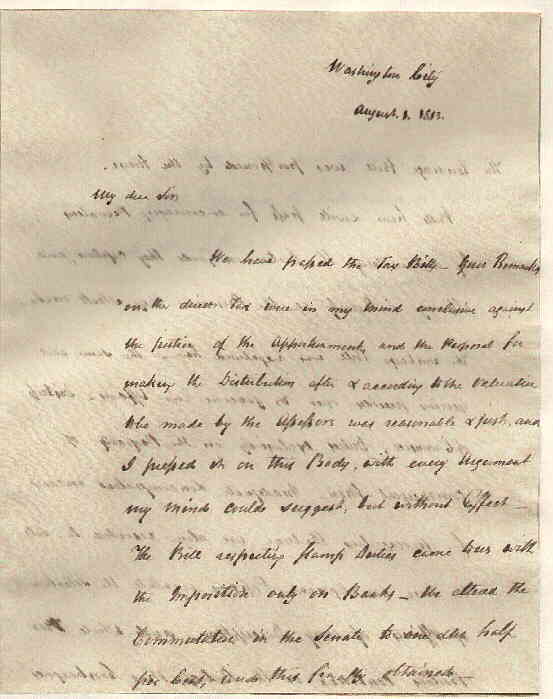 Washington City
August. 1. 1813.
My dear Sir
We have passed the Tax Bills - Your Remarks
on the direct Tax were in my mind conclusive against
the justice of the Apportionment, and the Proposal for
making the Distribution after & according to the Valuation
to be made by the Assessors was reasonable & just, and
I pressed it on this Body, with every Argument
my mind could suggest, but without Effect -
The Bill respecting Stamp Duties came to us with
the Imposition only on Banks - We altered the
Commutation in the Senate to one & an half
per Cent, and this finally obtained -